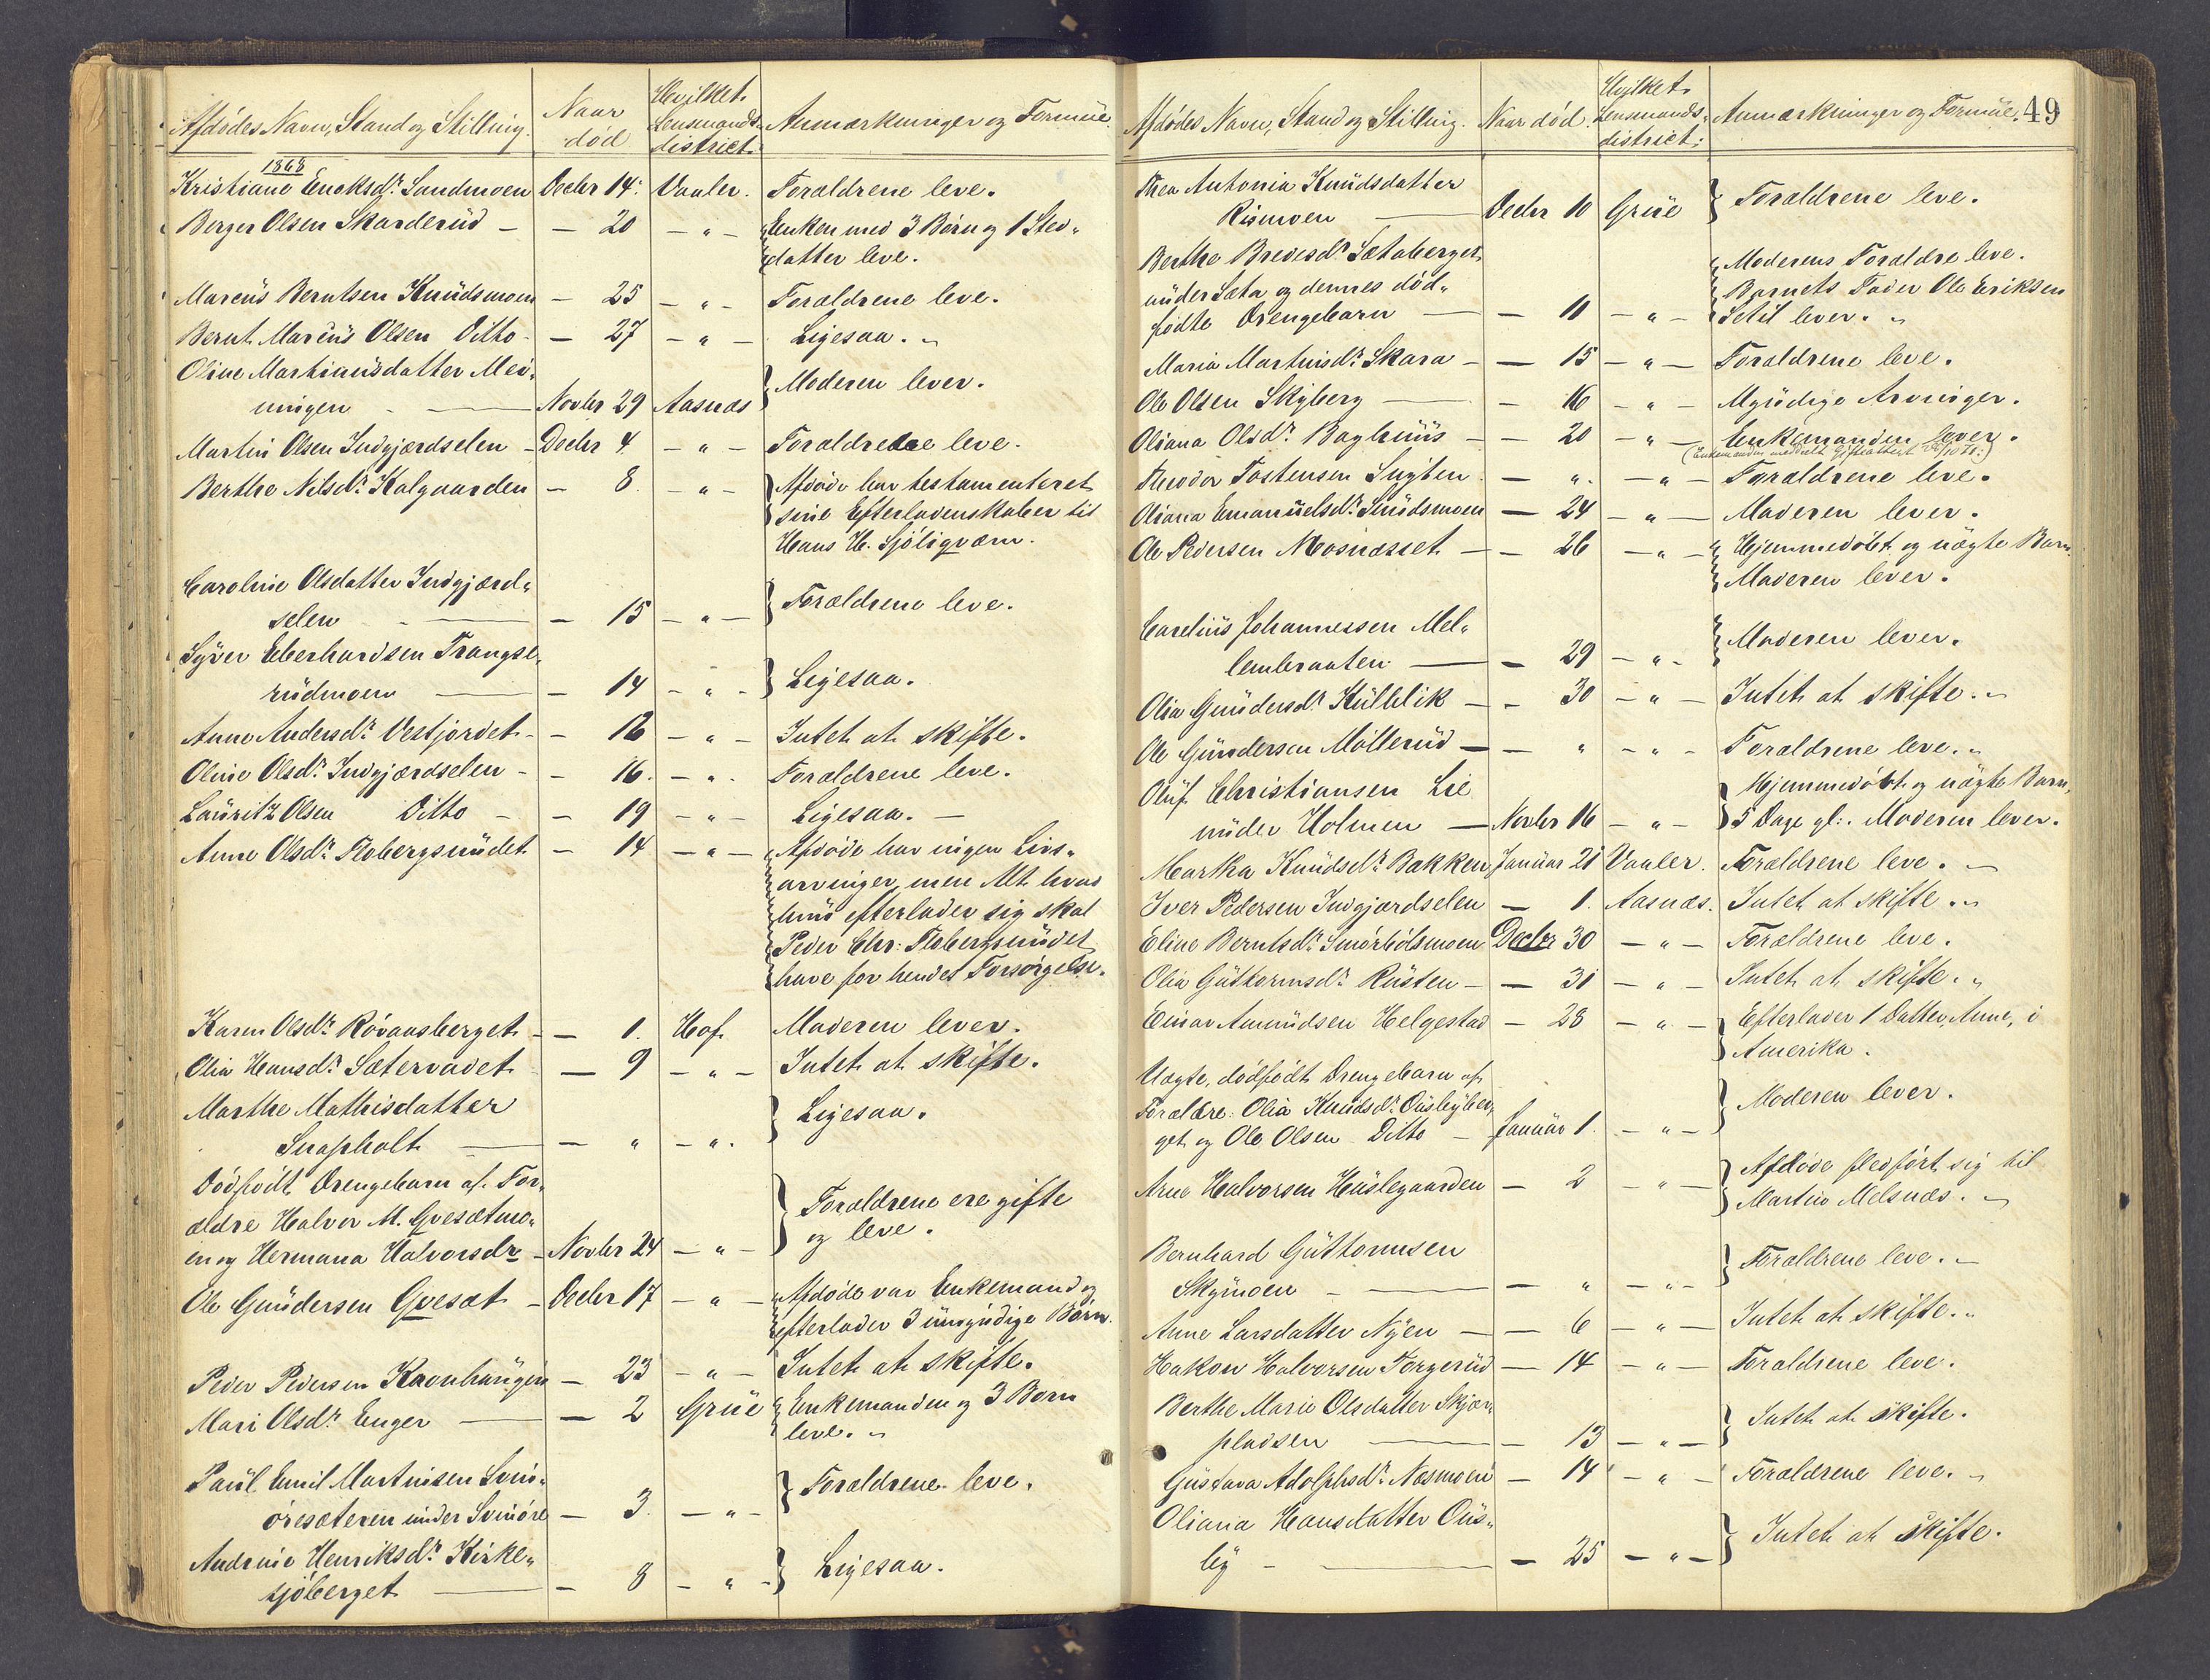 Afdödes Navn, Stand og Stilling. Naar död Hvilket Lensmands-district. Anmærkninger og Formüe.
1868
Kristiane Encksdr. Sandmoen Decbr 14. Vaaler. Forældrene leve.
Berger Olsen Skarderüd - — 20 — " — Enken med 3 Börn og 1 Sted-
datter leve.
Marcüs Berntsen Knüdsmoen — 25 — " — Forældrene leve.
Bernt Marcüs Olsen Ditto - — 27 — " — Ligesaa. "
Oline Martinüsdatter Mei-
ningen — Novbr 29 Aasnæs Moderen lever.
Martin Olsen Indgjærdselen - Decbr 4 — " — Forældrene leve.
Berthe Nilsdr. Kalgaarden — 8 — " — Afdöde har testamenteret
sine Efterladenskaber til
Hans H. Sjöliqværn.
Caroline Olsdatter Indgjærd-
selen — — 15 — " — Forældrene leve.
Syver Eberhardsen Trangse-
rüdmoen — — 14 — " — Ligesaa.
Anne Andersdr. Vestjordet - — 12 — " — Intet at skifte.
Oline Olsdr. Indgjærdselen - — 16. — " — Forældrene leve.
Laüritz Olsen Ditto - — 19 — " — Ligesaa. —
Anne Olsdr. Flobergsrüdet — 14 — " — Afdöde har ingen Livs-
arvinger, men Alt hvad
hün efterlader sig skal
Peder Chr: Flobergsrüdet
have for hendes Forsörgelse.
Karen Olsdr. Rövaasberget - — 1. Hof. Moderen lever.
Olia Hansdr. Sætervadet — 9 — " — Intet at skifte.
Marthe Mathisdatter
Snapholt — — " — " — Ligesaa.
Dödfödt Drengebarn af For-
ældre Halvor M. Gvesætmo-
en og Hermana Halvorsdr - Novbr 24 — " — Forældrene ere gifte
og leve.
Ole Gündersen Gvesæt - Decbr 17 — " — Afdöde var Enkemand og
efterlader 3 ümyndige Börn.
Peder Pedersen Kronhüngen — 23 — " — Intet at skifte.
Mari Olsdr. Enger — — 2 Grüe Enkemanden og 3 Börn
leve. "
Paül Emil Martinsen Svin-
öresæteren ünder Svinöre — 3. — " — Forældrene leve.
Andrine Henriksdr. Kirke-
sjöberget — — 8 — " — Ligesaa.
49
Afdödes Navn, Stand og Stilling. Naar död. Hvilket Lensmands-district: Anmærkninger og Formüe.
Thea Antonia Knüdsdatter
Rismoen — Decbr 10 Grüe Forældrene leve.
Berthe Bredesdr. Sætaberget
ünder Sæta og dennes död-
födte Drengebarn — — 11 — " — Moderens Forældre leve.
Barnets Fader Ole Eriksen
Setil lever. "
Maria Martinsdr. Skara - — 15 — " — Forældrene leve.
Ole Olsen Skyberg — — 16 — " — Myndige Arvinger.
Oliana Olsdr. Baghüüs - — 20 — " — Enkemanden lever.
(Enkemanden meddelt Gifteattest
Theodor Tostensen Sngten — " — " — Forældrene leve.
Oliana Emanüelsdr. Snüdsmoen — 24 — " — Moderen lever.
Ole Pedersen Mosnæsset - — 26 — " — Hjemmedöbt og üægte Barn.
Moderen lever.
Careliüs Johannessen Mel-
lembraaten — — 29 — " - Moderen lever.
Olia Gündersdr. Küllblik - — 30 — " — Intet at skifte. "
Ole Gündersen Möllerüd — — " — " — Forældrene leve. "
Olüf Christiansen Lie
ünder Holmen — Novbr 16 — " — Hjemmedöbt og üægte Barn,
5 Dage gl:. Moderen lever.
Martha Knüdsdr. Bakken Janüar 21 Vaaler. Forældrene leve. —
Iver Pedersen Indgjærdselen — 1. Aasnæs. Intet at skifte. "
Eline Berntsdr. Smörhölsmoen Decbr 30 — " — Forældrene leve.
Olia Güttormsdr. Rüsten - — 31 — " — Intet at skifte. "
Einar Amündsen Helgestad — 28 — " — Efterlader 1 Datter, Anne, i
Amerika.
Uægte, dödfödt Drengebarn af
Forældre: Olia Knüdsdr. Oüslyber-
get og Ole Olsen Ditto — Janüar 1. — " — Moderen lever.
Arne Halvorsen Hüslegaarden — 2 — " — Afdöde fledfört sig til
Martin Melsnæs. "
Bernhard Güttormsen
Skymoen — — " — " — Forældrene leve. —
Anne Larsdatter Nyen — — 6 — " — Intet at skifte. "
Hakon Halvorsen Torgerüd — 14 — " — Forældrene leve.
Berthe Marie Olsdatter Skjær-
pladsen — — 13 — " — Intet at skifte.
Güstava Adolphsdr. Næsmoen — 14 — " — Forældrene leve. "
Oliana Hansdatter Oüs-
by — — 25 — " — Intet at skifte.